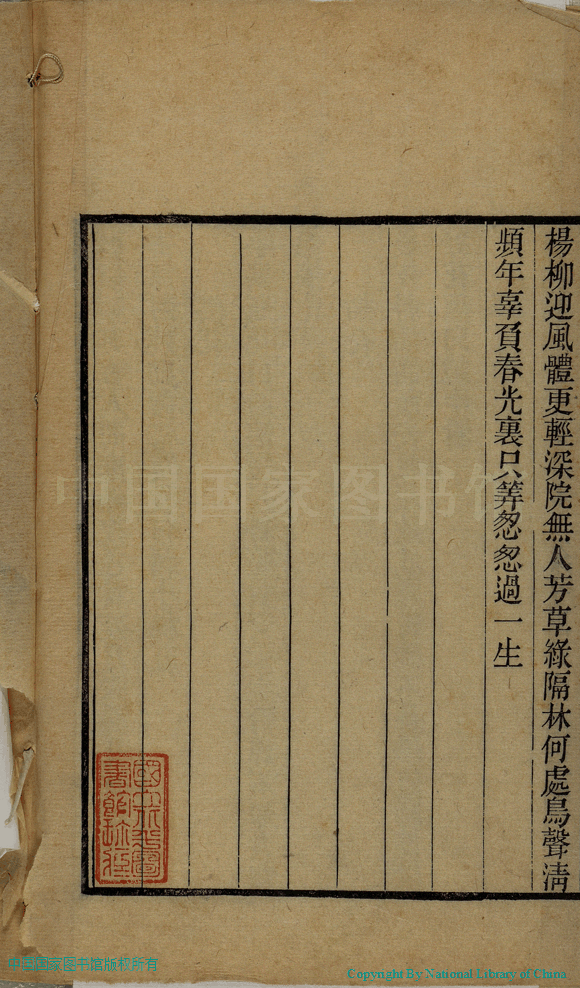 楊柳迎風體更輕深院無人芳草綠隔林何處鳥聲淸
頻年辜負春光裏只筭怱怱過一生
國家圖
書館珍藏
中国国家图书馆
中国国家图书馆版权所有
Copyright By National Library of China.